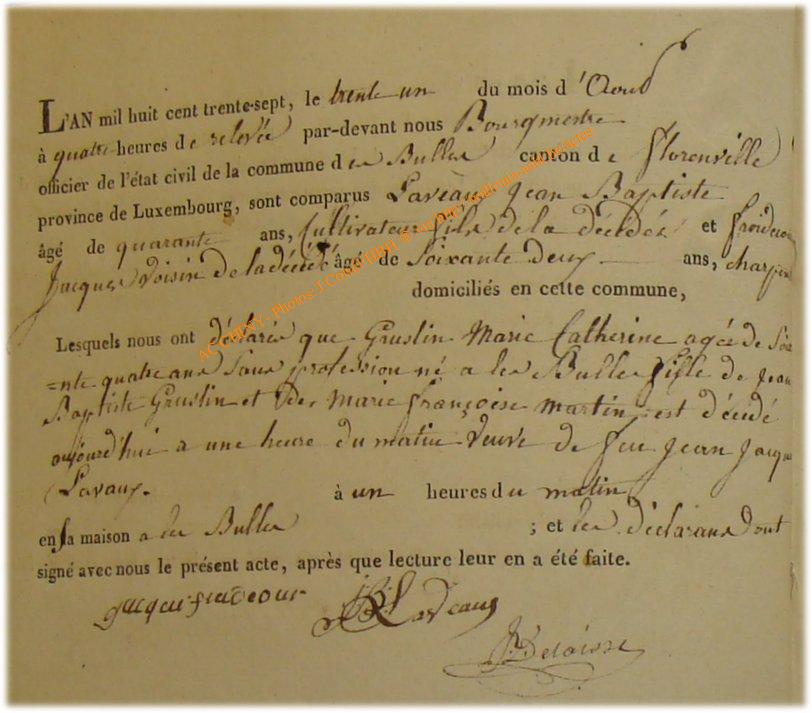 L'AN mil huit cent trente-sept, le trente un du mois d'Aout
à quatre heures de relevée par-devant nous Bourgmestre
officier de l'état civil de la commune de les Bulles canton de florenville
province de Luxembourg, sont comparus Laveaux Jean Baptiste
âgé de quarante ans, Cultivateur fils de la décédée et
Jacques voisin de la décédé âgé de Soixante deux ans,
domiciliés en cette commune,
Lesquels nous ont déclarés que Gruslin Marie Catherine agée de Soix
=nte quatre ans Sans profession né a les Bulles fille de Jean
Baptiste Gruslin et de Marie françoise Martin est décédé
aujourd'hui a une heure du matin Veuve de feu Jean Jacqu
Lavaux. à un heures du matin
en sa maison a les Bulles ; et les déclarans ont
signé avec nous le présent acte, après que lecture leur en a été faite.
JB Laveaux